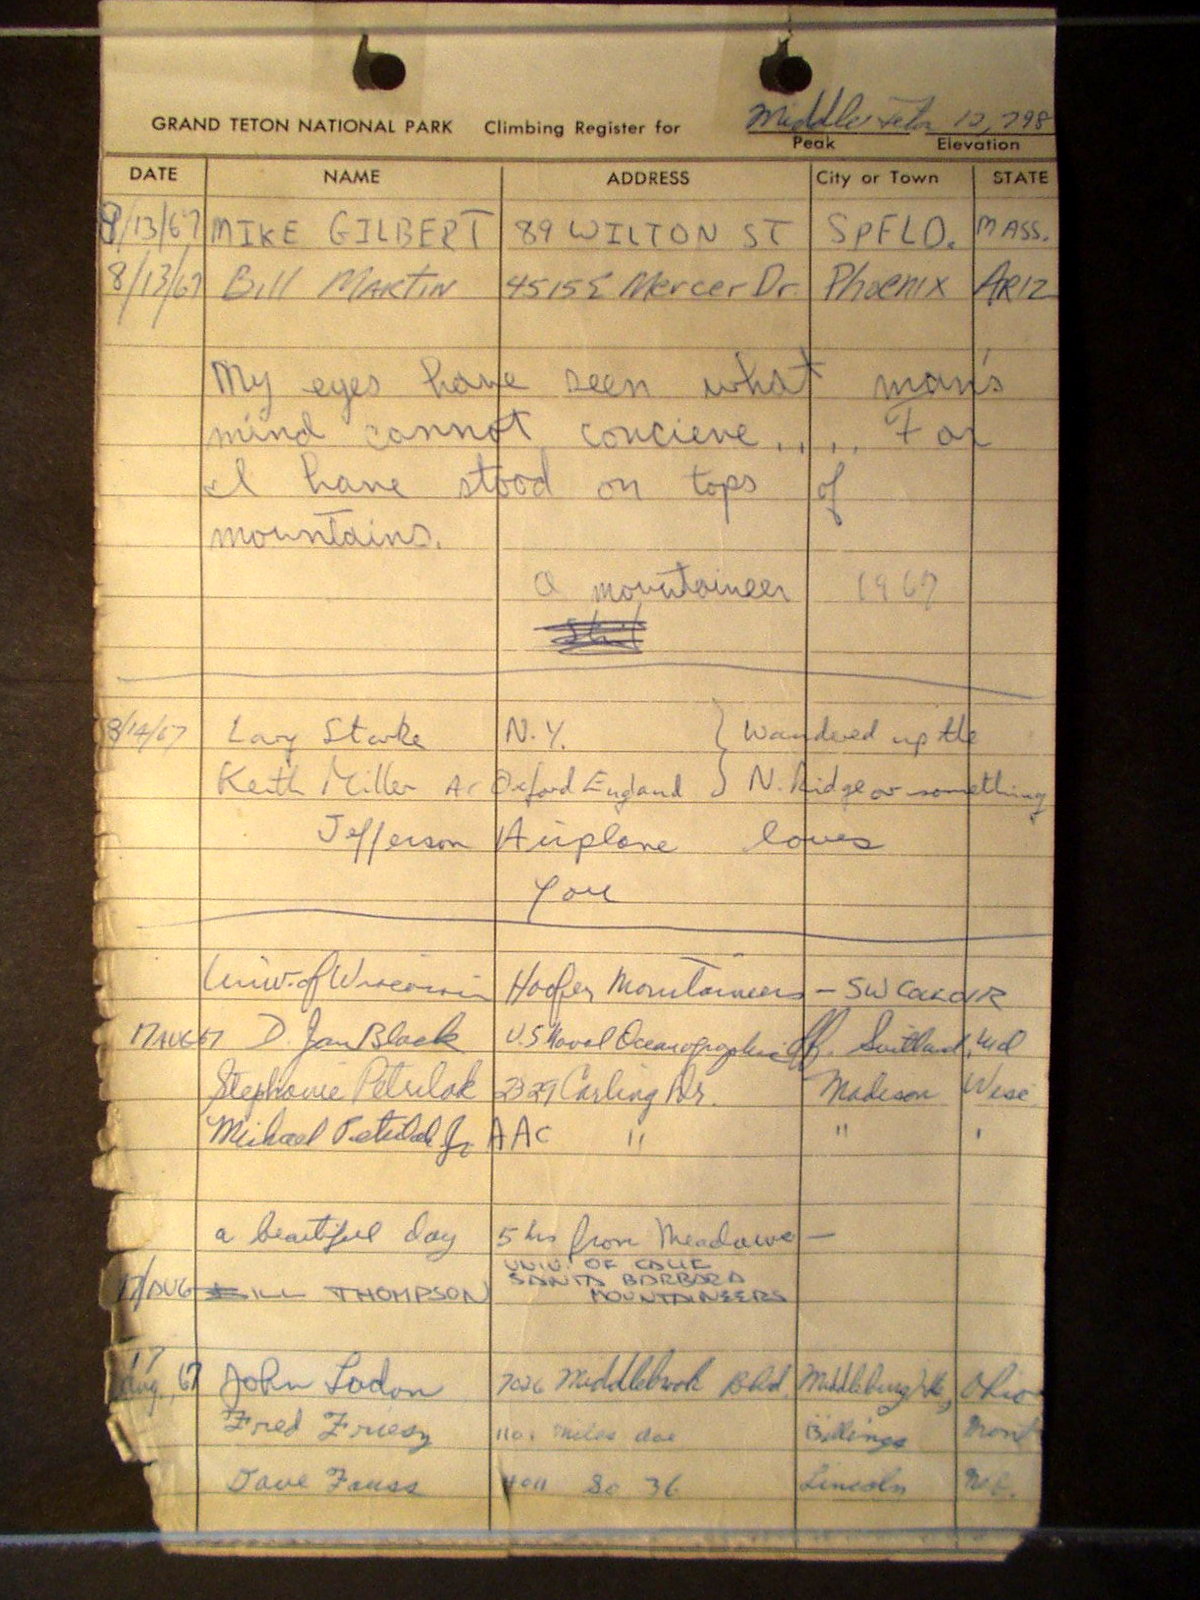 Middle Teton 12,798
GRAND TETON NATIONAL PARK Climbing Register for
Peak Elevation
DATE NAME ADDRESS City or Town STATE
8/13/67 MIKE GILBERT 89 WILTON ST SPFLD. MASS.
8/13/67 Bill MARTIN 4515 E Mercer Dr. Phoenix ARIZ
My eyes have seen what man's
mind cannot concieve..... For
I have stood on tops of
mountains.
a mountaineer 1967
8/14/67 Lary Starke N.Y. } Wandered up the
Keith Miller Oxford England } N. Ridge or something
Jefferson Airplane loves
you
Univ. of Wisconsin Hoofer Mountaineers – SW COULOIR
17 AUG 67 D. Jan Black U.S Naval Oceanographic Off. Suitland, Md
Stephanie Petrilak 2329 Carling Dr. Madison Wisc.
Michael Petrilak Jr. AAC " " "
a beautiful day 5 hrs from Meadows –
UNIV. OF CALIF
SANTA BARBARA
17/AUG BILL THOMPSON MOUNTAINEERS
17
Aug., 67 John Lodon 7026 Middlebrook Blvd. Middleburg Hts, Ohio
Fred Friesz miles ave Billings Mont
Dave Fauss 4011 So 36 Lincoln Neb.